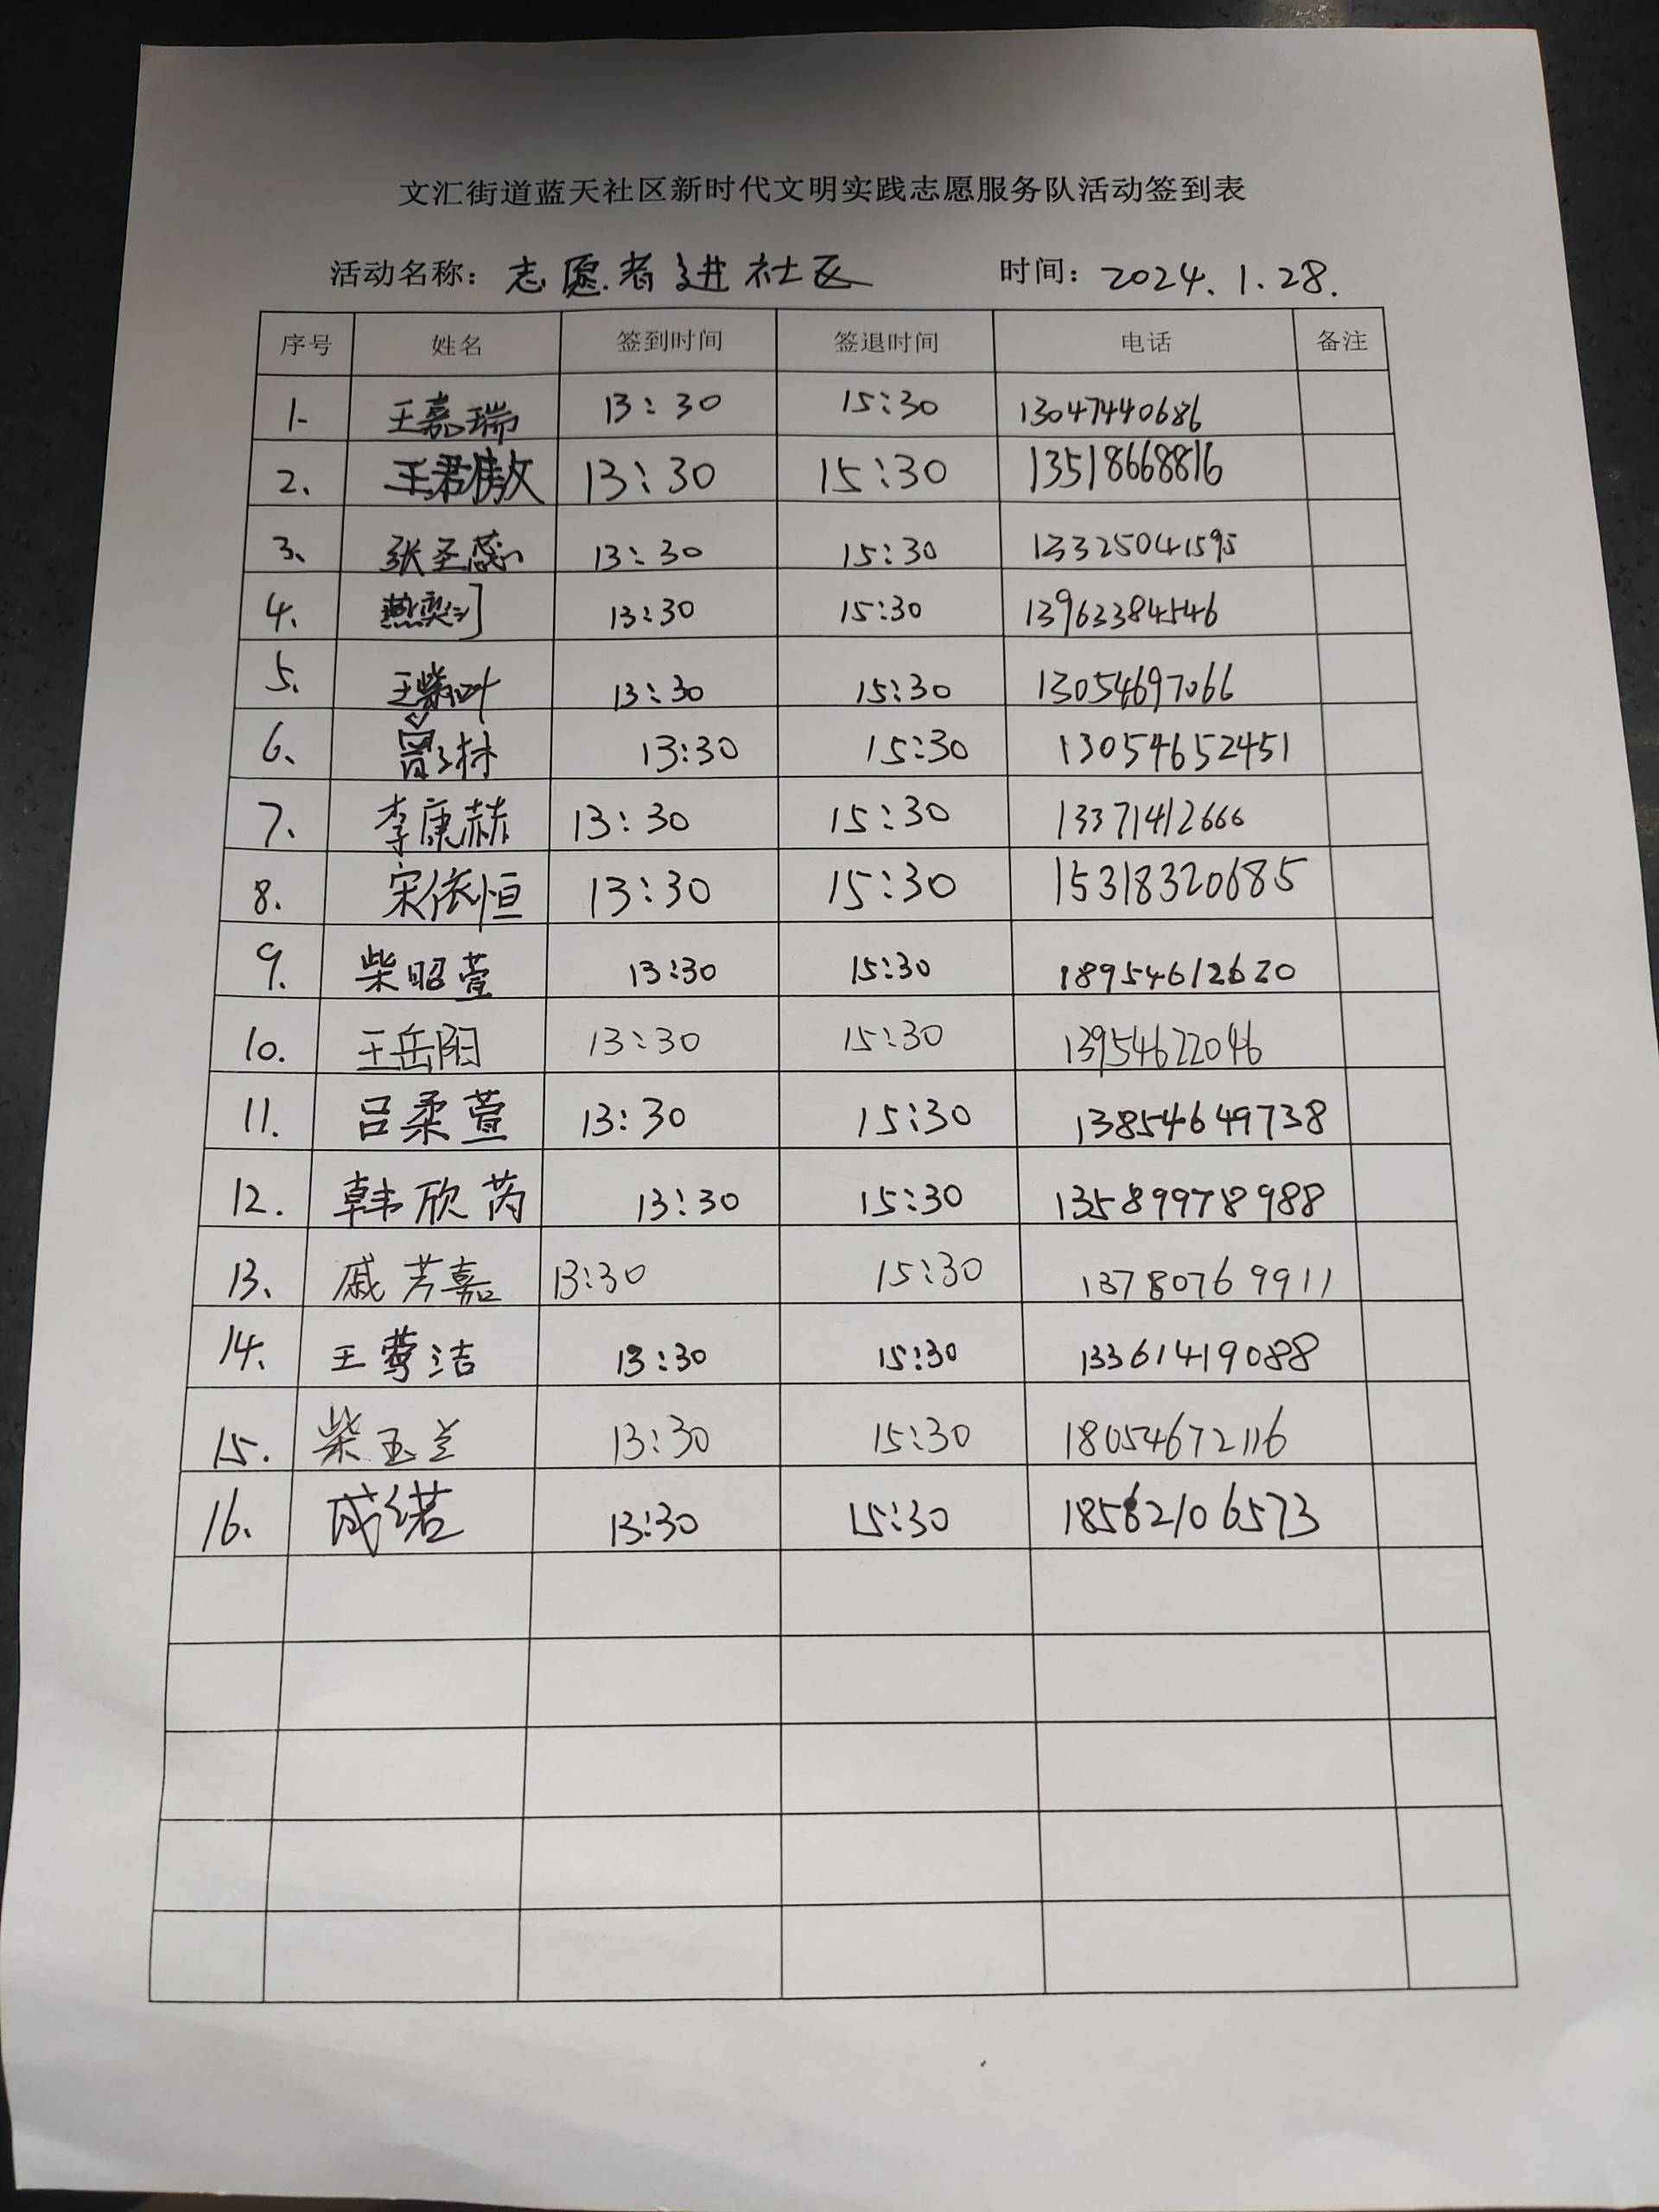 文汇街道蓝天社区新时代文明实践志愿服务队活动签到表
活动名称：志愿者进社区 时间：2024.1.28.
序号 姓名 签到时间 签退时间 电话 备注
1. 王嘉瑞 13:30 15:30 13047440686
2. 王君傲 13:30 15:30 13518668816
3、 张圣蕊 13:30 15:30 13325041595
4、 13:30 15:30 13963384546
5、 13:30 15:30 13054697066
6、 13:30 15:30 13054652451
7、 李康赫 13:30 15:30 13371412666
8. 宋依恒 13:30 15:30 15318320685
9. 柴昭萱 13:30 15:30 18954612620
10. 王岳阳 13:30 15:30 13954622046
11. 吕柔萱 13:30 15:30 13854649738
12. 韩欣芮 13:30 15:30 13589978988
13、 戚芳嘉 13:30 15:30 13780769911
14、 王莺洁 13:30 15:30 13361419088
15. 柴玉兰 13:30 15:30 18054672116
16、 成诺 13:30 15:30 18562106573